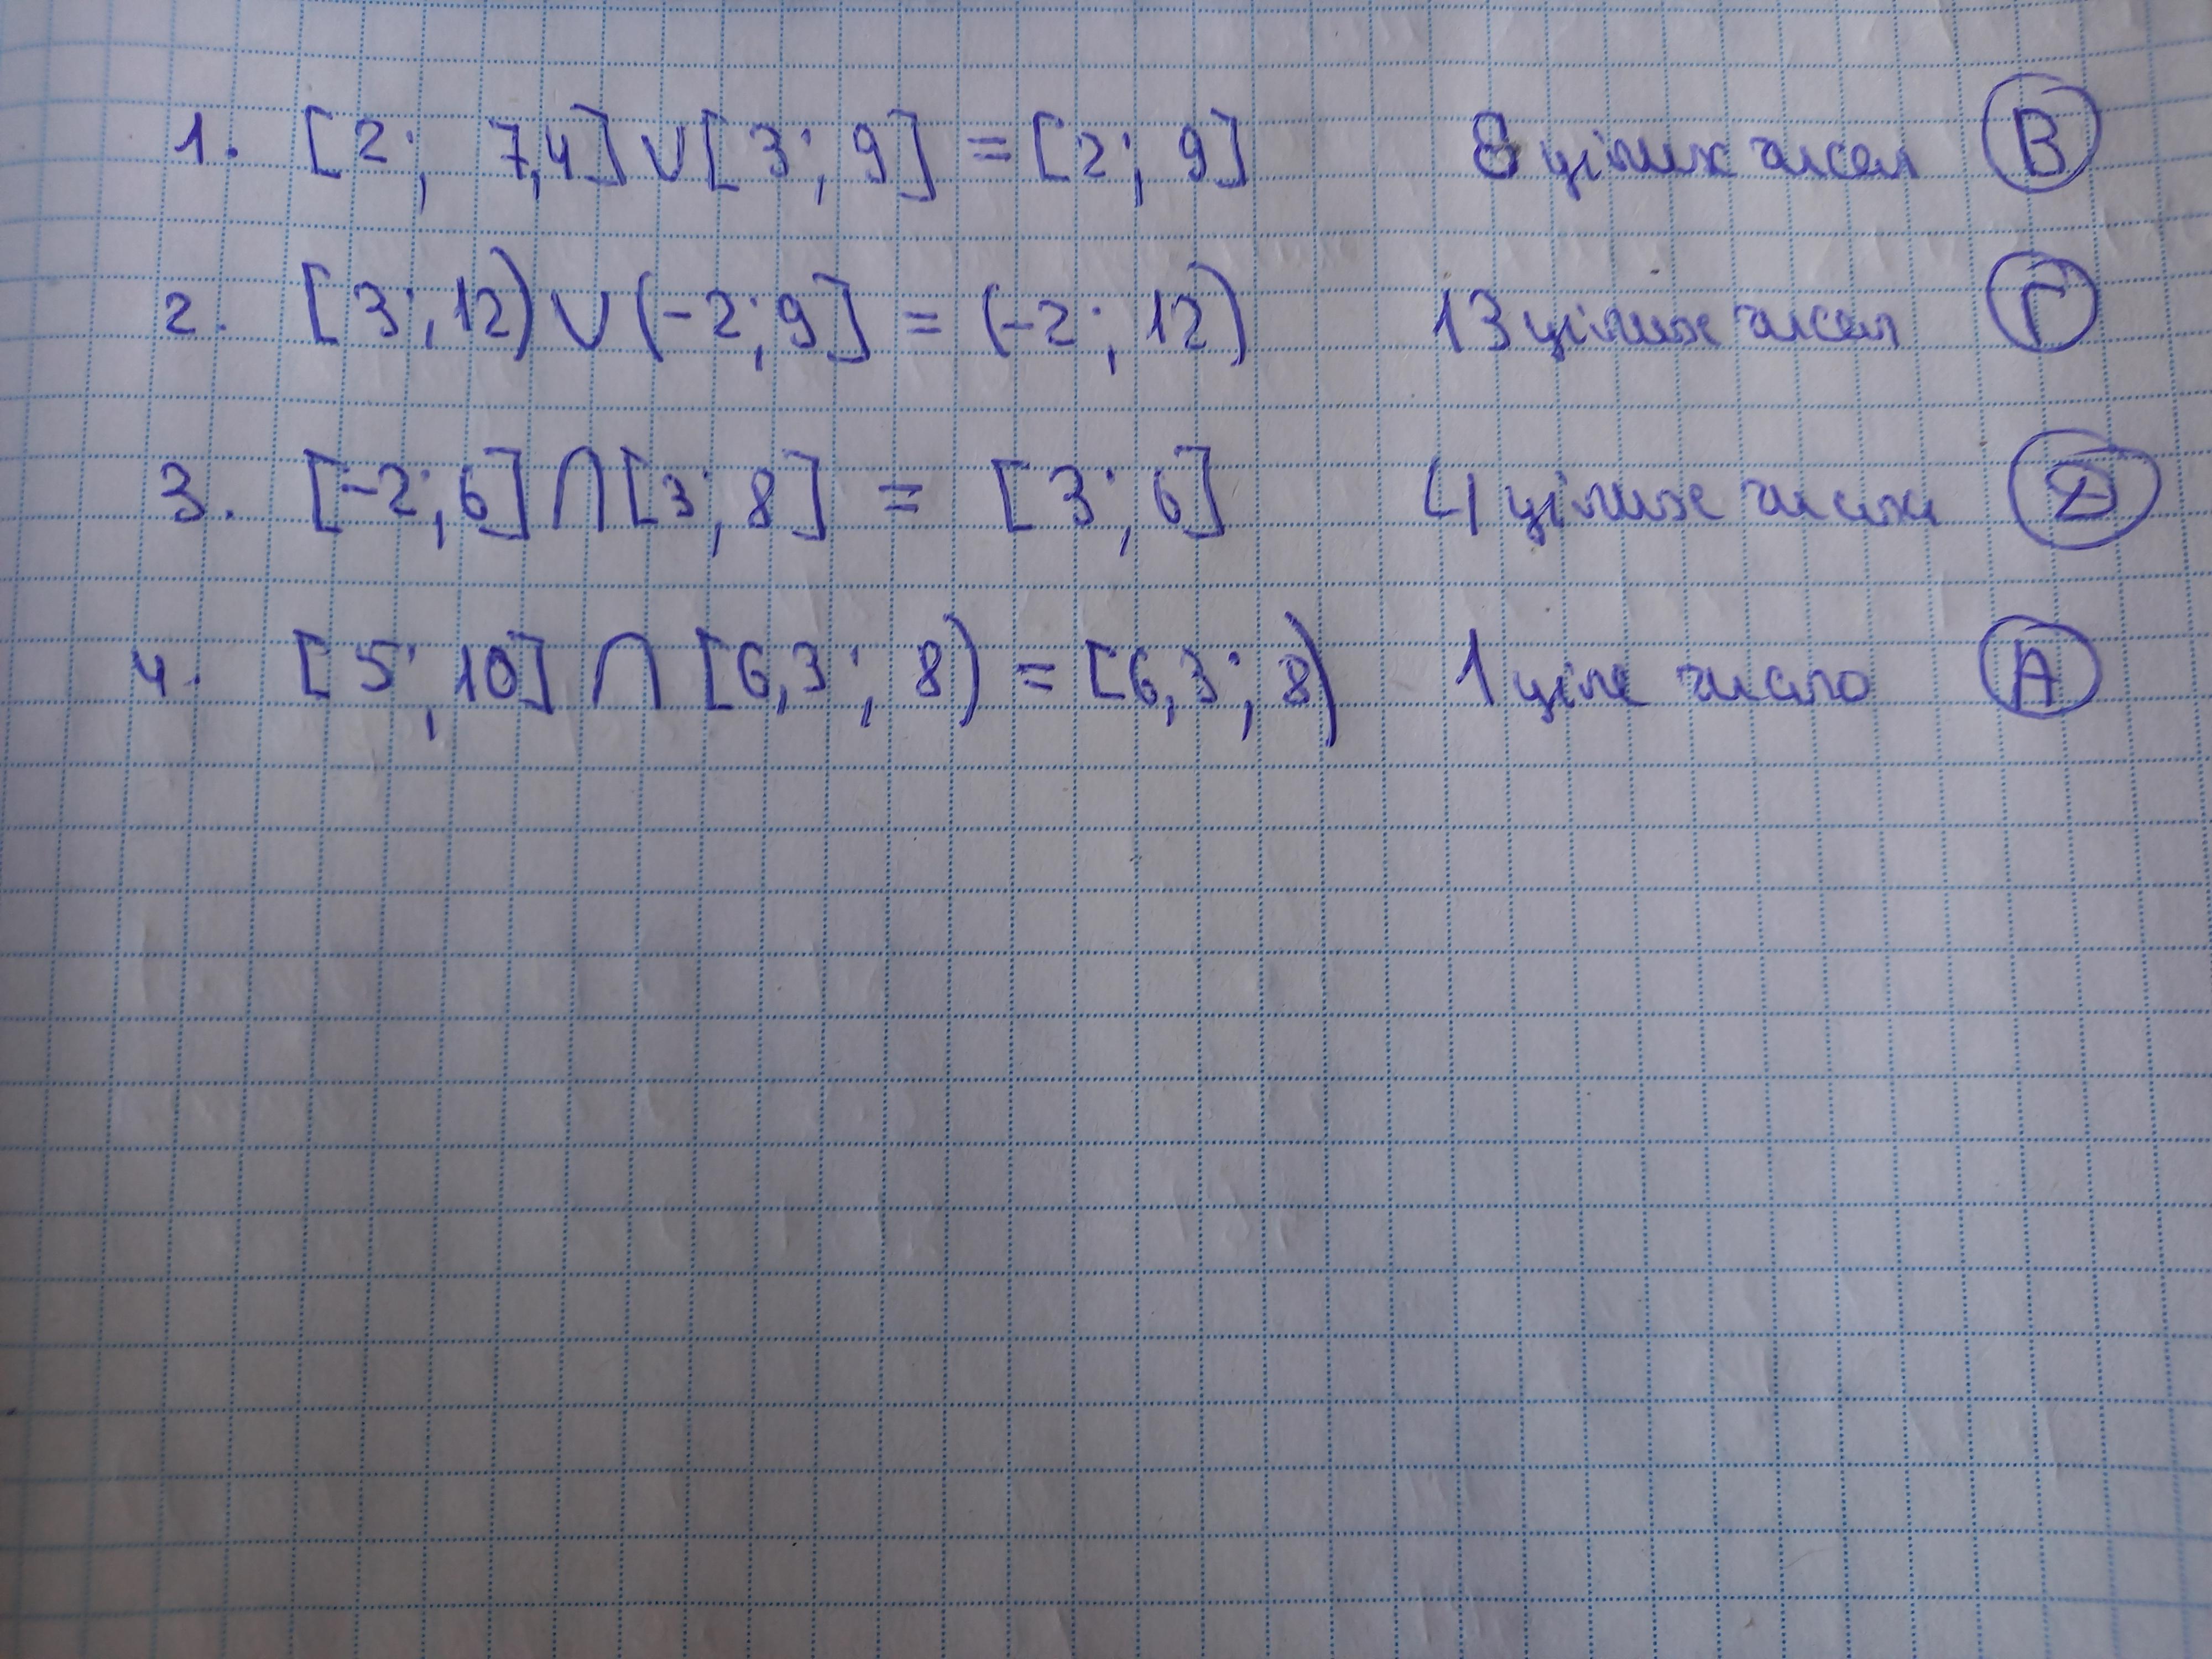 1. [2; 7,4] ∪ [3; 9] = [2; 9] 8 цілих чисел В
2. [3; 12) ∪ (-2; 9] = (-2; 12) 13 цілих чисел Г
3. [-2; 6] ∩ [3; 8] = [3; 6] 4 цілих числа Д
4. [5; 10] ∩ [6,3; 8) = [6,3; 8) 1 ціле число А